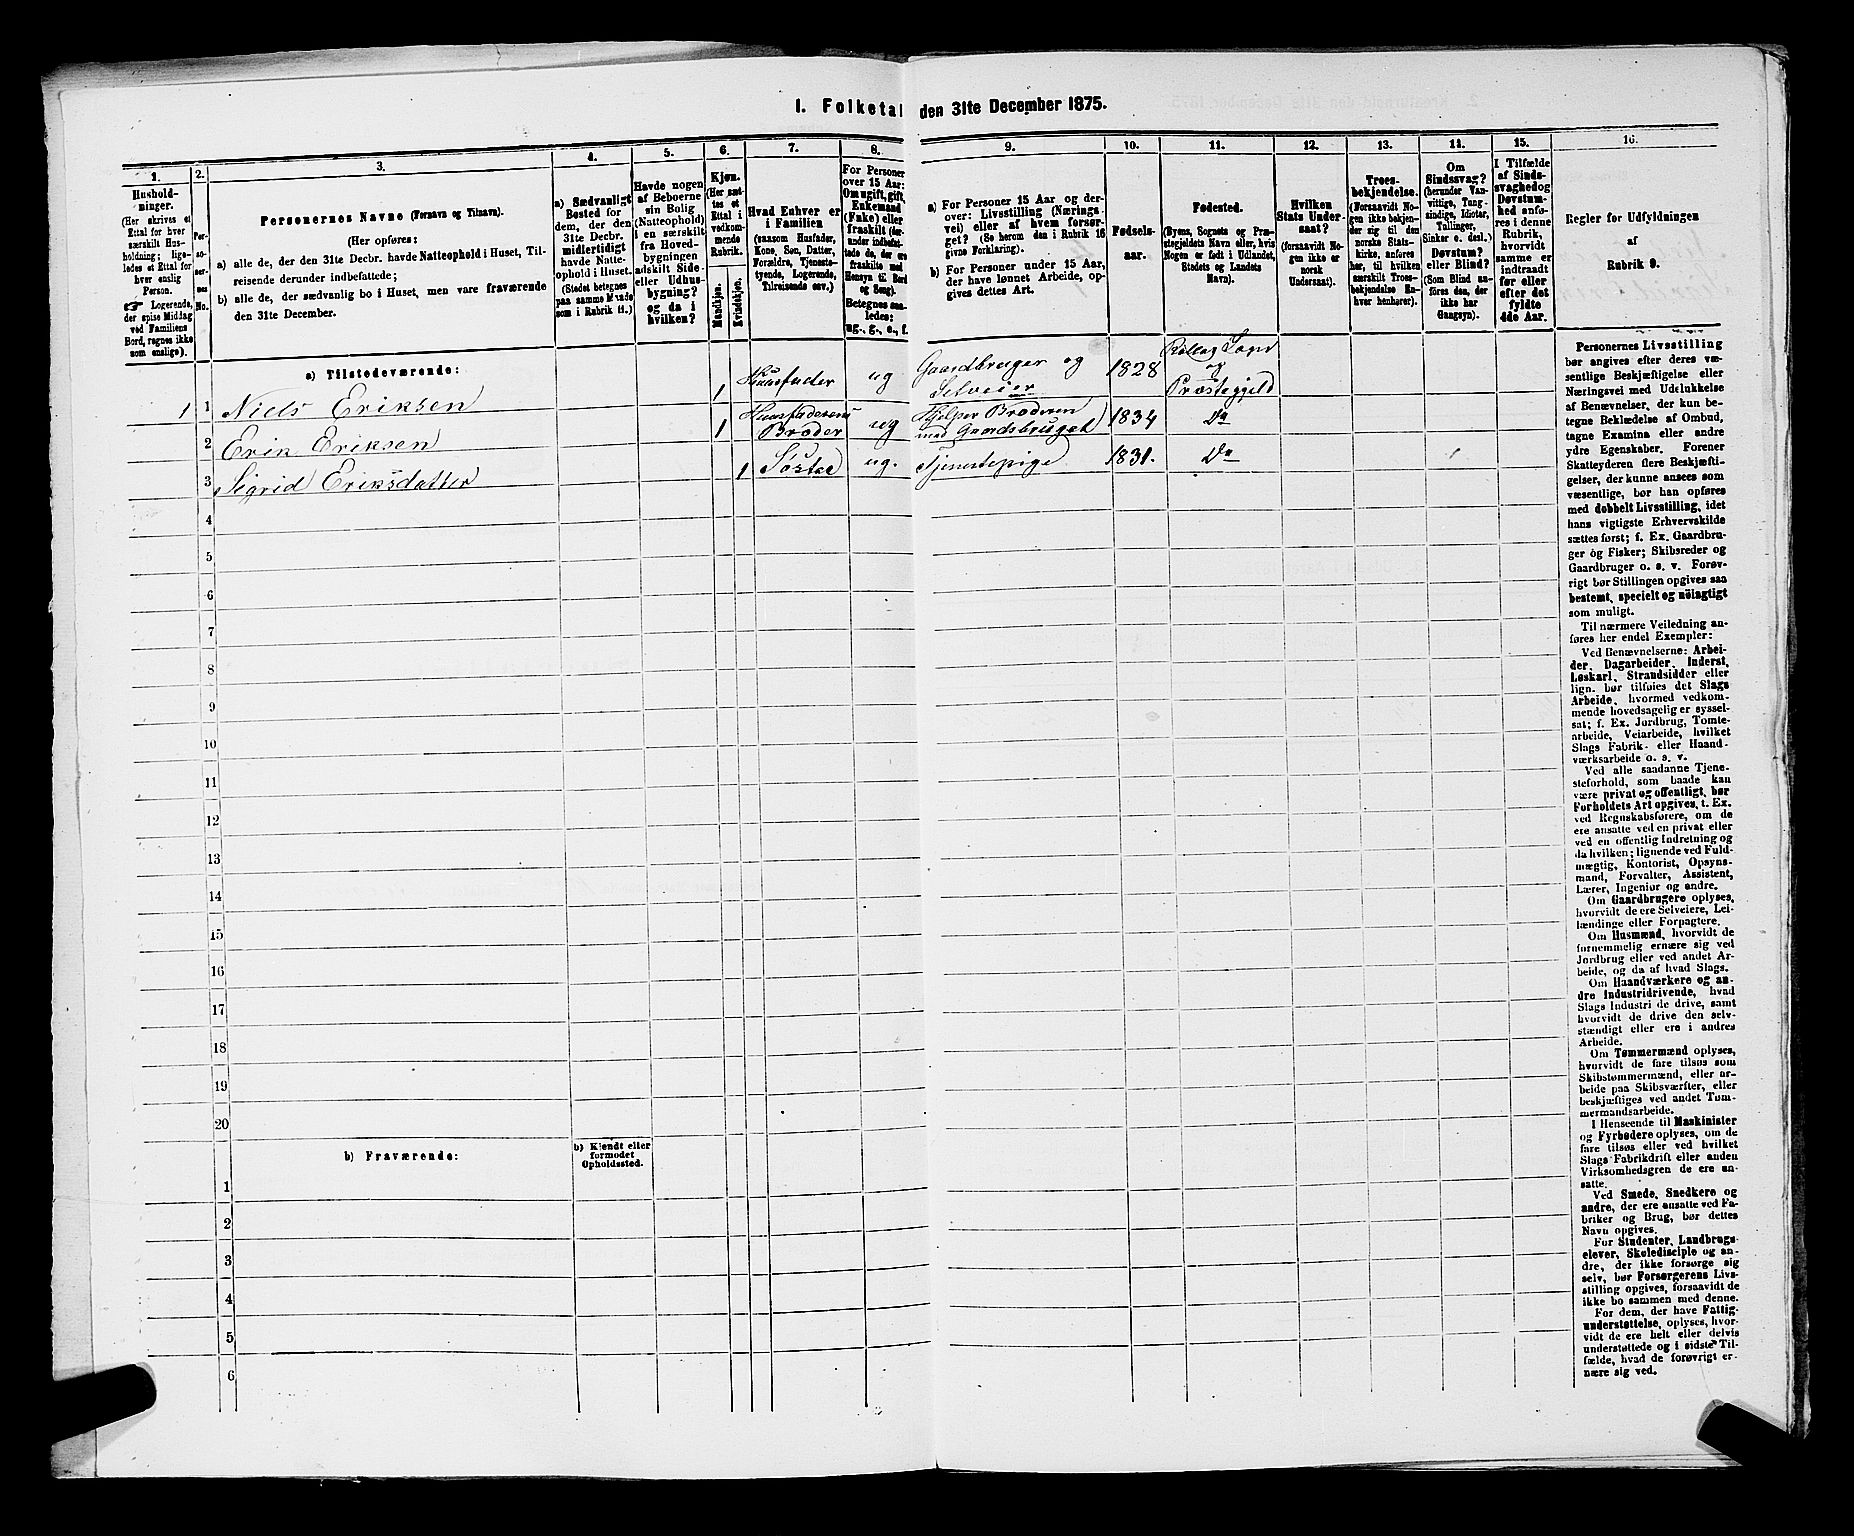 I. Folketal
den 31te December 1875.
1.
Hushold-
ninger.
(Her skrives et
Ettal for hver
særskilt Hus-
holdning; lige-
ledes et Ettal for
hver enslig
Person.
Logerende,
der spise Middag
ved Familiens
Bord, regnes ikke
som enslige).
2.
Per-
so-
ner-
nes
No.
3.
Personernes Navne (Fornavn og Tilnavn).
(Her opføres:
a) alle de, der den 31te Decbr. havde Natteophold i Huset, Til-
reisende derunder indbefattede;
b) alle de, der sædvanlig bo i Huset, men vare fraværende
den 31te December.
4.
a) Sædvanligt
Bosted for
dem, der den
31te Decbr.
midlertidigt
havde Natte-
ophold i Huset.
(Stedet betegnes
paa samme Maade
som i Rubrik 11.)
5.
Havde nogen
af Beboerne
sin Bolig
(Natteophold)
i en særskilt
fra Hoved-
bygningen
adskilt Side-
eller Udhus-
bygning?
og da i
hvilken?
6.
Kjøn.
(Her sæt-
tes et
Ettal i
vedkom-
mende
Rubrik.
Mandkjøn.
Kvindekjøn.
7.
Hvad Enhver er
i Familien
(saasom Husfader,
Kone, Søn, Datter,
Forældre, Tjeneste-
tyende, Logerende,
Tilreisende osv.)
8.
For Personer
over 15 Aar:
Om ugift, gift,
Enkemand
(Enke) eller
fraskilt (der-
under indbefat-
tede de, der ere
fraskilte med
Hensyn til Bord
og Seng).
Betegnes saa-
ledes:
ug., g., e., f.
9.
a) For Personer 15 Aar og der-
over: Livsstilling (Nærings-
vei) eller af hvem forsør-
get? (Se herom den i Rubrik 16
givne Forklaring).
b) For Personer under 15 Aar,
der have lønnet Arbeide, op-
gives dettes Art.
10.
Fødsels-
aar.
11.
Fødested.
(Byens, Sognets og Præ-
stegjeldets Navn eller, hvis
Nogen er født i Udlandet,
Stedets og Landets
Navn).
12.
Hvilken
Stats Under-
saat?
(forsaavidt No-
gen ikke er
norsk
Undersaat).
13.
Troes-
bekjendelse.
(Forsaavidt No-
gen ikke bekjen-
der sig til den
norske Stats-
kirke, anføres
her, til hvilken
særskilt Troes-
bekjendelse En-
hver henhører).
14.
Om
Sindssvag?
(herunder Van-
vittige, Tung-
sindige, Idioter,
Tallinger,
Sinker o. desl.)
Døvstum?
eller Blind?
(Som Blind an-
føres den, der
ikke har
Gangsyn).
15.
I Tilfælde
af Sinds-
svaghed og
Døvstum-
hed anfø-
res i denne
Rubrik,
hvorvidt
samme er
indtraadt
før eller
efter det
fyldte
4de Aar.
16.
Regler for Udfyldningen
af
Rubrik 9.
a) Tilstedeværende:
1 1 Niels Eriksen 1 Huusfader ug Gaardbruger og Selveier 1828 Rollag Sogn og Præstegjeld
2 Erik Eriksen 1 Huusfaderens Broder ug Hjelper Broderen med Gaardsbruget) 1834 Do
3 Sigrid Eriksdatter 1 Søster ug. Tjenestepige 1831. Do
4
5
6
7
8
9
10
11
12
13
14
15
16
17
18
19
20
b) Fraværende:
b) Kjendt eller
formodet
Opholdssted.
1
2
3
4
5
6
Personernes Livsstilling
bør angives efter deres væ-
sentlige Beskjæftigelse eller
Næringsvei med Udelukkelse
af Benævnelser, der kun be-
tegne Beklædelse af Ombud,
tagne Examina eller andre
ydre Egenskaber. Forener
Skatteyderen flere Beskjæfti-
gelser, der kunne ansees som
væsentlige, bør han opføres
med dobbelt Livsstilling, idet
hans vigtigste Erhvervskilde
sættes først; f. Ex. Gaardbru-
ger og Fisker; Skibsreder og
Gaardbruger o. s. v. Forøv-
rigt bør Stillingen opgives saa
bestemt, specielt og nøiagtigt
som muligt.
Til nærmere Veiledning an-
føres her endel Exempler:
Ved Benævnelserne: Arbei-
der, Dagarbeider, Inderst,
Løskarl, Strandsidder eller
lign. bør tilføies det Slags
Arbeide, hvormed vedkom-
mende hovedsagelig er syssel-
sat; f. Ex. Jordbrug, Tomte-
arbeide, Veiarbeide, hvilket
Slags Fabrik- eller Haand-
værksarbeide o. s. v.
Ved alle saadanne Tjene-
steforhold, som baade kan
være privat og offentligt, bør
Forholdets Art opgives, t. Ex.
ved Regnskabsførere, om de
ere ansatte ved en privat eller
ved en offentlig Indretning og
da hvilken; lignende ved Fuld-
mægtig, Kontorist, Opsyns-
mand, Forvalter, Assistent,
Lærer, Ingeniør og andre.
Om Gaardbrugere oplyses,
hvorvidt de ere Selveiere, Lei-
lændinge eller Forpagtere.
Om Husmænd, hvorvidt de
fornemmelig ernære sig ved
Jordbrug eller ved andet Ar-
beide, og da af hvad Slags.
Om Haandværkere og an-
dre Industridrivende, hvad
Slags Industri de drive, samt
hvorvidt de drive den selv-
stændigt eller ere i andres
Arbeide.
Om Tømmermænd oplyses,
hvorvidt de fare tilsøs som
Skibstømmermænd, eller ar-
beide paa Skibsværfter, eller
beskjæftiges ved andet Tøm-
mermandsarbeide.
I Henseende til Maskinister
og Fyrbødere oplyses, om de
fare tilsøs eller ved hvilket
Slags Fabrikdrift eller anden
Virksomhedsgren de ere an-
satte.
Ved Smede, Snedkere og
andre, der ere ansatte ved Fa-
briker og Brug, bør dettes
Navn opgives.
For Studenter, Landbrugs-
elever, Skoledisciple og an-
dre, der ikke forsørge sig
selv, bør Forsørgerens Livs-
stilling opgives, forsaavidt de
ikke bo sammen med denne.
For dem, der have Fattig-
understøttelse, oplyses, hvor-
vidt de ere helt eller delvis
understøttede og i sidste Til-
fælde, hvad de forøvrigt er-
nære sig ved.